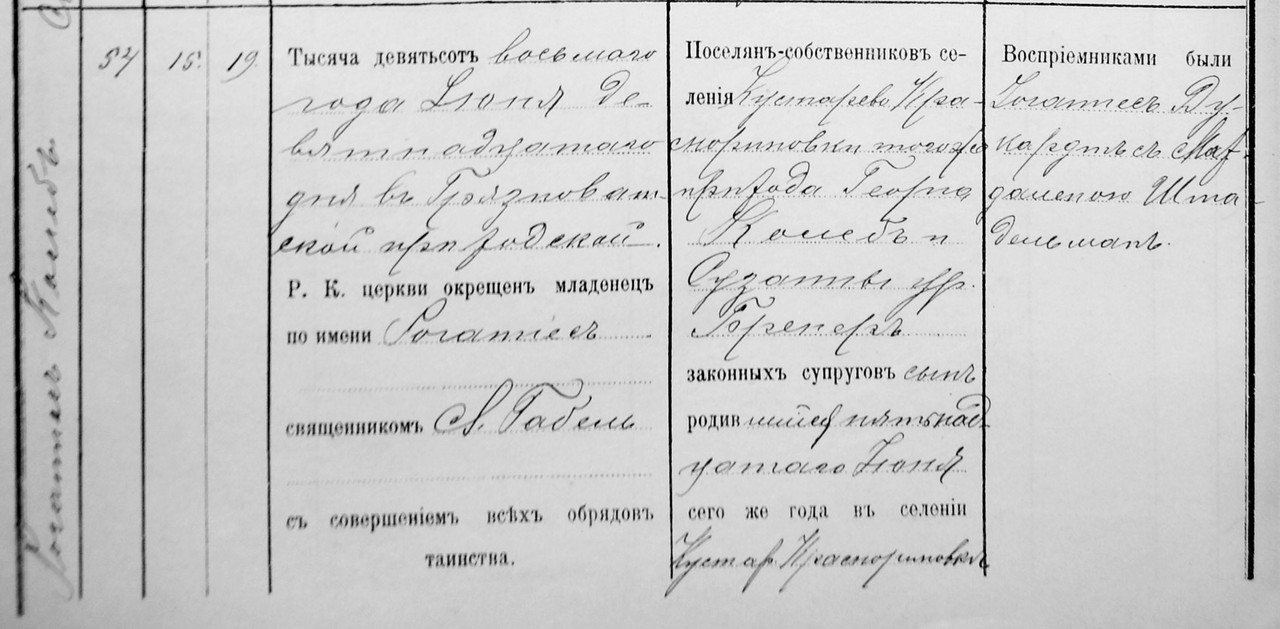 Іоганнесъ Колебъ
54 15. 19.
Тысяча девятьсотъ восьмаго
года Іюня де-
вятнадцатаго
дня въ Грязноват-
ской приходской
Р. К. церкви окрещенъ младенецъ
по имени Іоганнесъ
священникомъ А. Габель
съ совершеніемъ всѣхъ обрядовъ
таинства.
Поселянъ-собственниковъ се-
ленія Кустарево Кра-
снориновки того же
прихода Георга
Колебъ и
Сузанны ур.
законныхъ супруговъ сынъ
родившійся пятнад-
цатаго Іюня
сего же года въ селеніи
Кустар. Краснориновкѣ
Воспріемниками были
Іоганнесъ Ду-
кардтъ съ Маг-
даленою Шта-
дельманъ.